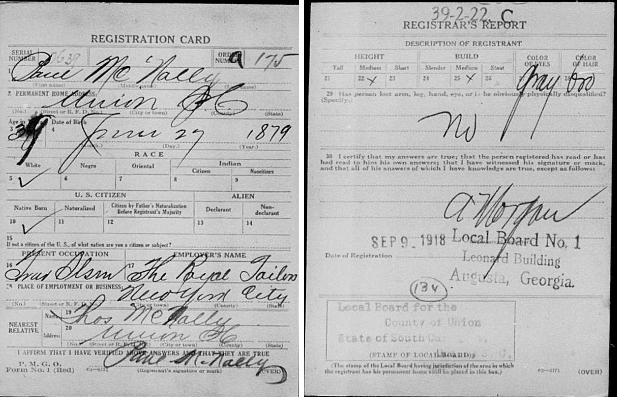 REGISTRATION CARD
SERIAL NUMBER
ORDER NUMBER A 175
Paul McNally
(First name) (Middle name) (Last name)
2 PERMANENT HOME ADDRESS:
Union S.C.
(Street or R. F. D. No.) (City or town) (County) (State)
Age in Years Date of Birth
3 39 4 June 27 1879
(Month.) (Day.) (Year.)
RACE
White Negro Oriental Indian
Citizen Noncitizen
5 ✓ 6 7 8 9
U. S. CITIZEN ALIEN
Native Born Naturalized Citizen by Father's Naturalization Before Registrant's Majority Declarant Non-declarant
10 ✓ 11 12 13 14
15
If not a citizen of the U. S., of what nation are you a citizen or subject?
PRESENT OCCUPATION EMPLOYER'S NAME
16 17 The Royal Tailors
18 PLACE OF EMPLOYMENT OR BUSINESS:
New York City
(No.) (Street or R. F. D. No.) (City or town) (County) (State)
NEAREST RELATIVE
Name 19 Thos McNally
Address 20 Union SC
(No.) (Street or R. F. D. No.) (City or town) (County) (State)
I AFFIRM THAT I HAVE VERIFIED ABOVE ANSWERS AND THAT THEY ARE TRUE
P. M. G. O.
Form No. 1 (Red)
Paul McNally
(Registrant's signature or mark)
(OVER)
39-2-22 C
REGISTRAR'S REPORT
DESCRIPTION OF REGISTRANT
HEIGHT BUILD COLOR OF EYES COLOR OF HAIR
Tall Medium Short Slender Medium Stout
21 22 x 23 24 25 x 26 27 gray 28
29 Has person lost arm, leg, hand, eye, or is he obviously physically disqualified?
(Specify.)
no
30 I certify that my answers are true; that the person registered has read or has had read to him his own answers; that I have witnessed his signature or mark, and that all of his answers of which I have knowledge are true, except as follows:
A Morgan
Date of Registration SEP 9 1918
Local Board No. 1
Leonard Building
Augusta, Georgia.
134
Local Board for the
County of Union
State of South
(STAMP OF LOCAL BOARD)
(The stamp of the Local Board having jurisdiction of the area in which the registrant has his permanent home shall be placed in this box.)
(OVER)